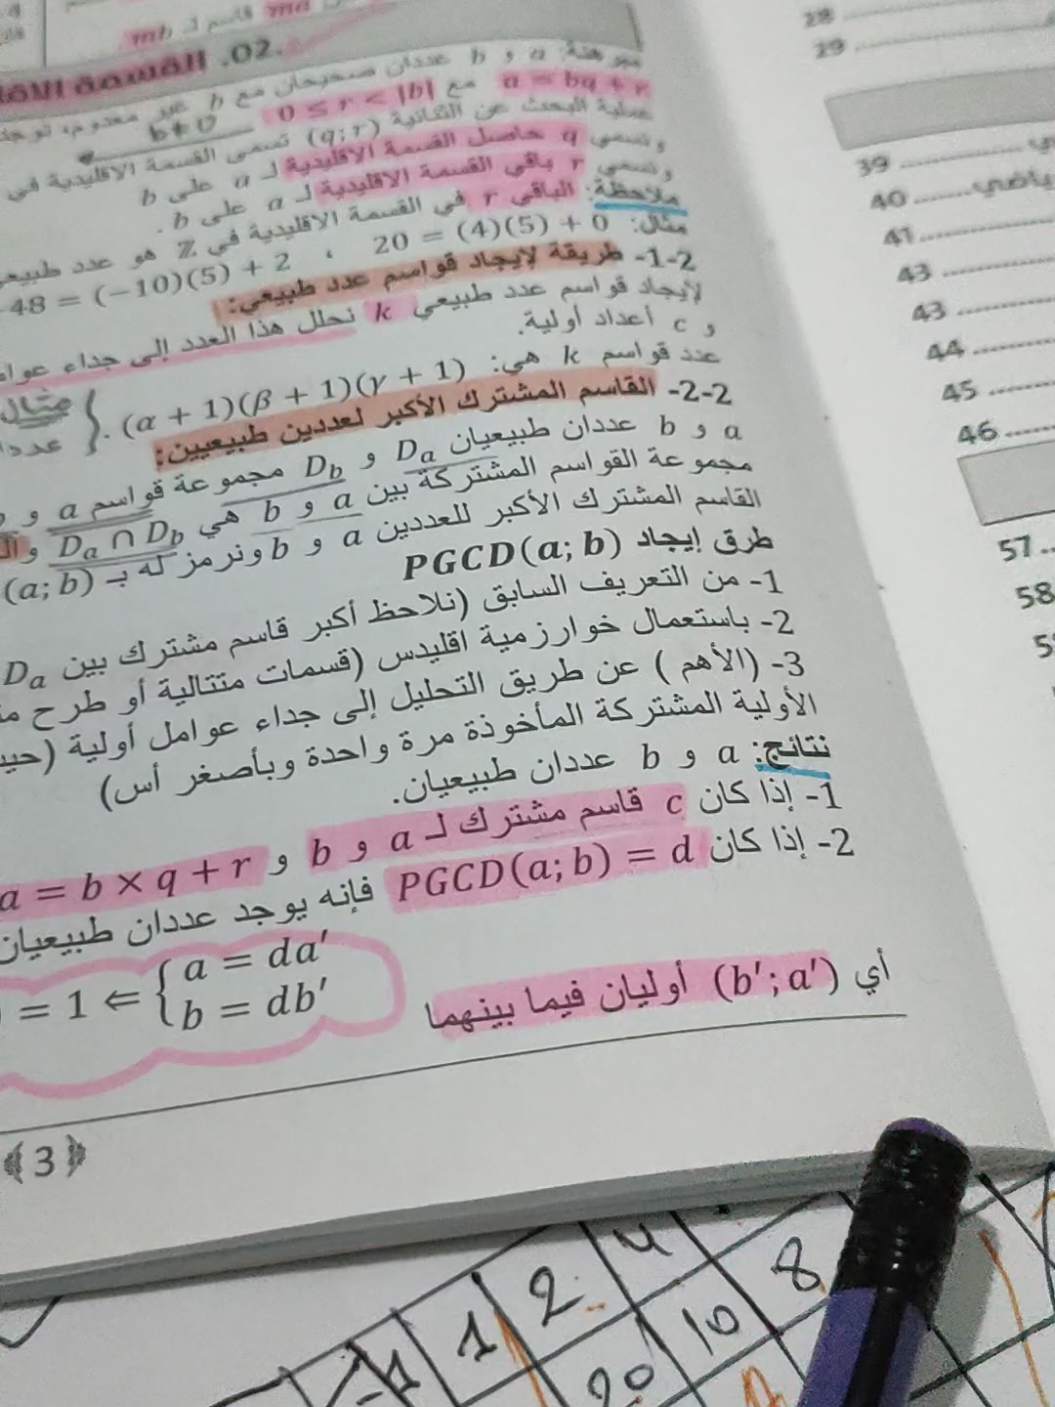 02. القسمة الاقل
a و b عددان صحيحان مع b غير معدوم، توجد
a = bq + r مع 0 ≤ r < |b|
b≠0
عملية البحث عن الثنائية (q; r) تسمى القسمة الاقليدية في
ونسمي q حاصل القسمة الاقليدية لـ a على b
ونسمي r باقي القسمة الاقليدية لـ a على b.
ملاحظة: الباقي r في القسمة الاقليدية في ℤ هو عدد طبيعي
مثال: 20 = (4)(5) + 0 ، 48 = (−10)(5) + 2
2-1- طريقة لإيجاد قواسم عدد طبيعي:
لإيجاد قواسم عدد طبيعي k نحلل هذا العدد إلى جداء عوا
و c أعداد أولية.
عدد قواسم k هي: (α + 1)(β + 1)(γ + 1). } مثال
2-2- القاسم المشترك الأكبر لعددين طبيعيين:
a و b عددان طبيعيان D_a و D_b مجموعة قواسم a و b
مجموعة القواسم المشتركة بين a و b هي D_a ∩ D_b و
القاسم المشترك الأكبر للعددين a و b ونرمز له بـ (a; b)
طرق إيجاد PGCD(a; b)
1- من التعريف السابق (نلاحظ أكبر قاسم مشترك بين D_a
2- باستعمال خوارزمية اقليدس (قسمات متتالية أو طرح
3- (الأهم ) عن طريق التحليل إلى جداء عوامل أولية (
الأولية المشتركة المأخوذة مرة واحدة وبأصغر أس)
نتائج: a و b عددان طبيعيان.
1- إذا كان c قاسم مشترك لـ a و b و a = b × q + r
2- إذا كان PGCD(a; b) = d فإنه يوجد عددان طبيعيان
= 1 ⇐ { a = da′
b = db′
أي (b′; a′) أوليان فيما بينهما
3
28
29
39
40
41
43
43
44
45
46
57
58
1 2 4 8
10
20